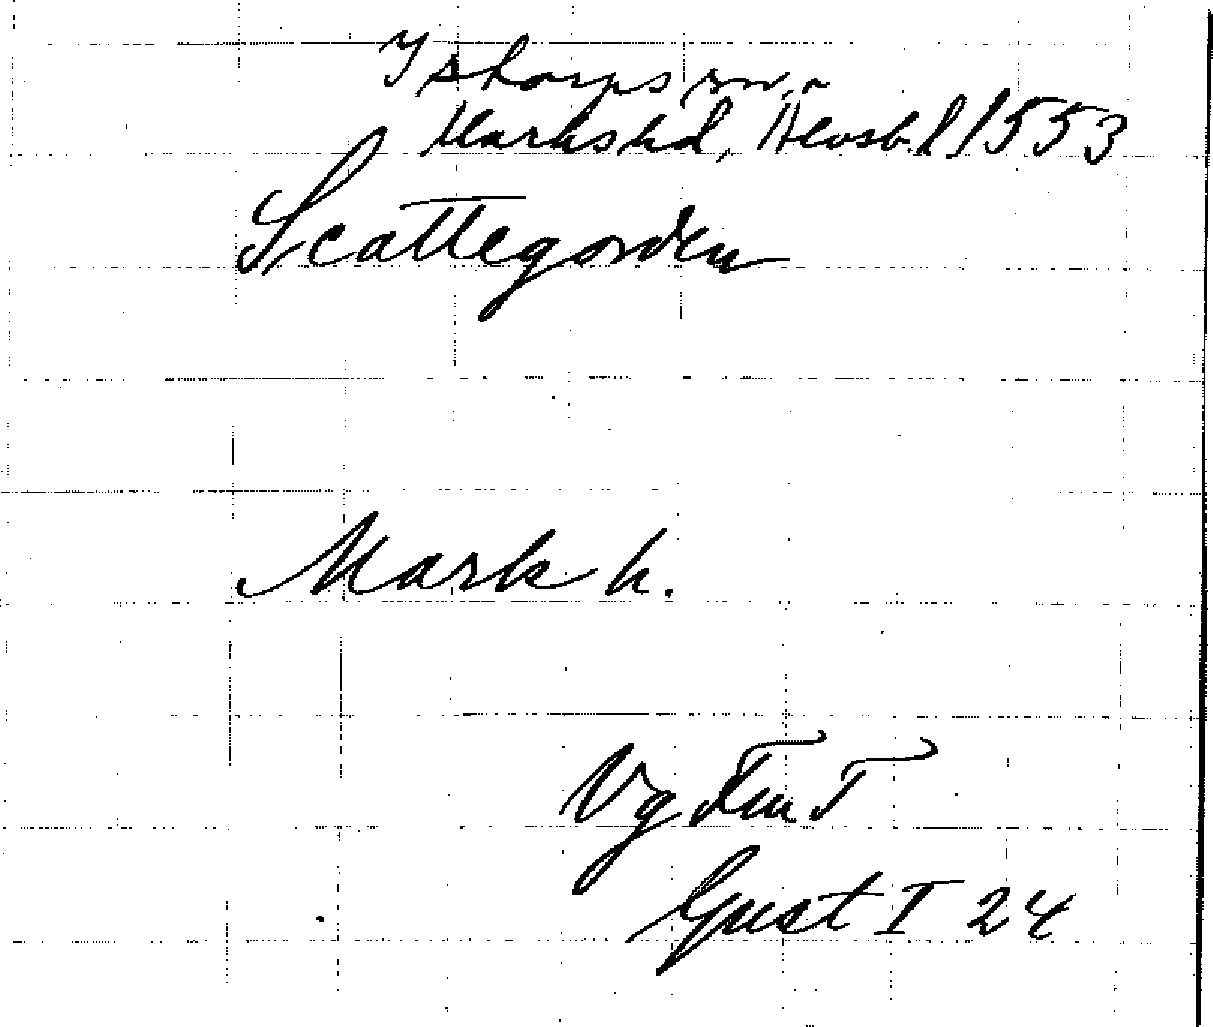 Tskorps sn.
Marks hd, Älvsb. l 1553
Scattegorden
Mark h.
Vg Fin T
Gust I 24